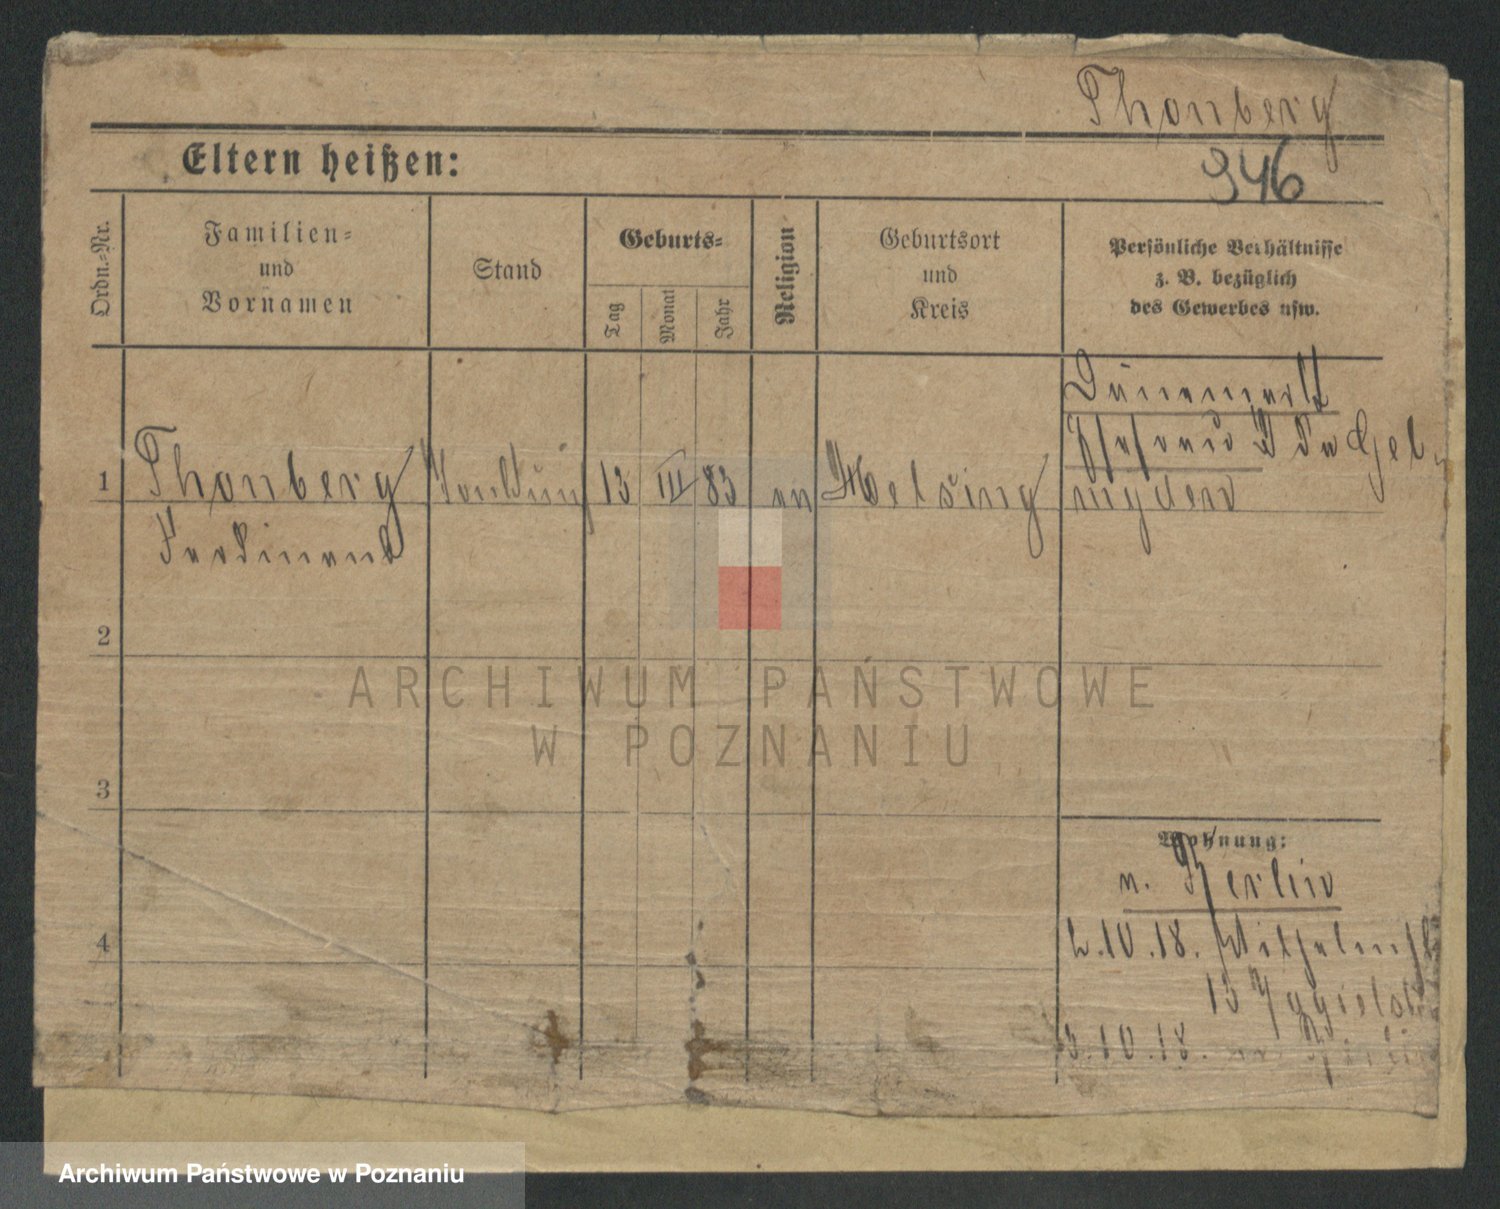 Thonberg
946
Eltern heißen:
Ordn.-Nr.
Familien- und Vornamen
Stand
Geburts-
Tag
Monat
Jahr
Religion
Geburtsort und Kreis
Persönliche Verhältnisse
z. B. bezüglich
des Gewerbes usw.
Dänemark
1
Thonberg
13 III 83
Helsing
Ferdinand
2
3
4
Wohnung:
n. Berlin
2.10.18. Wilhelmstr
13
3.10.18. n. Berlin
ARCHIWUM PAŃSTWOWE
W POZNANIU
Archiwum Państwowe w Poznaniu